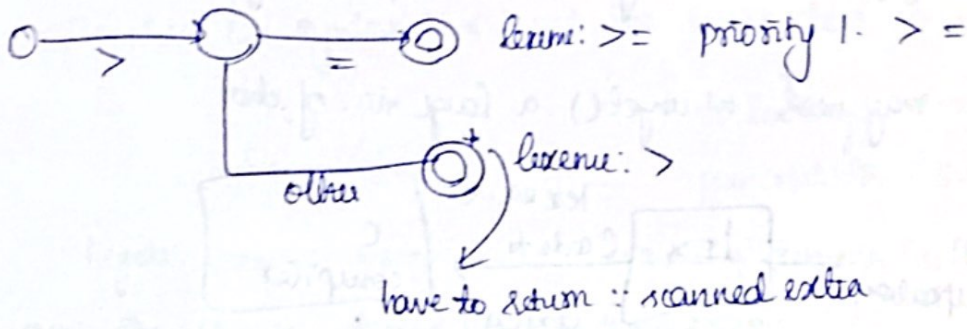 > = lexeme: >= priority 1. > =
other * lexeme: >
have to return ∵ scanned extra